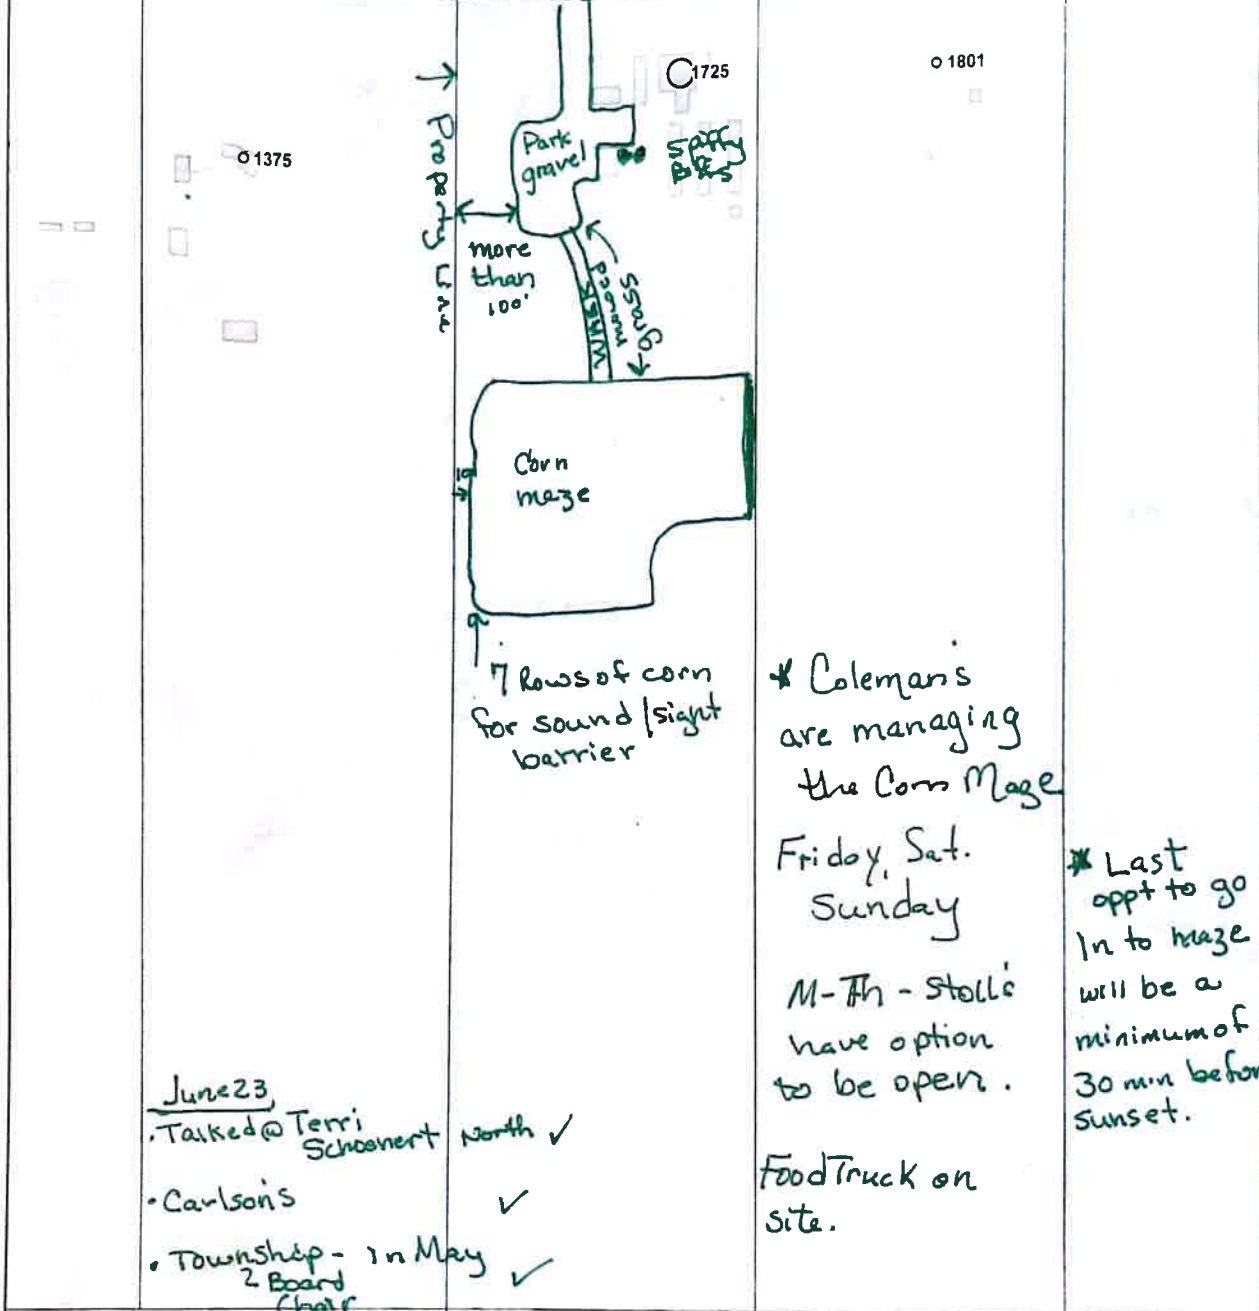 1725
1801
1375
Property Line
Park
gravel
Spiffy
Biffs
more
than
100'
mowed
grass
Corn
maze
10
7 Rows of corn
for sound/sight
barrier
* Coleman's
are managing
the Corn Maze
Friday, Sat.
Sunday
M-Th - Stoll's
have option
to be open.
Food Truck on
site.
* Last
oppt to go
In to maze
will be a
minimum of
30 min befor
sunset.
June 23,
• Talked @ Terri
Schoonert North ✓
• Carlson's ✓
• Township - in May ✓
2 Board
Chair